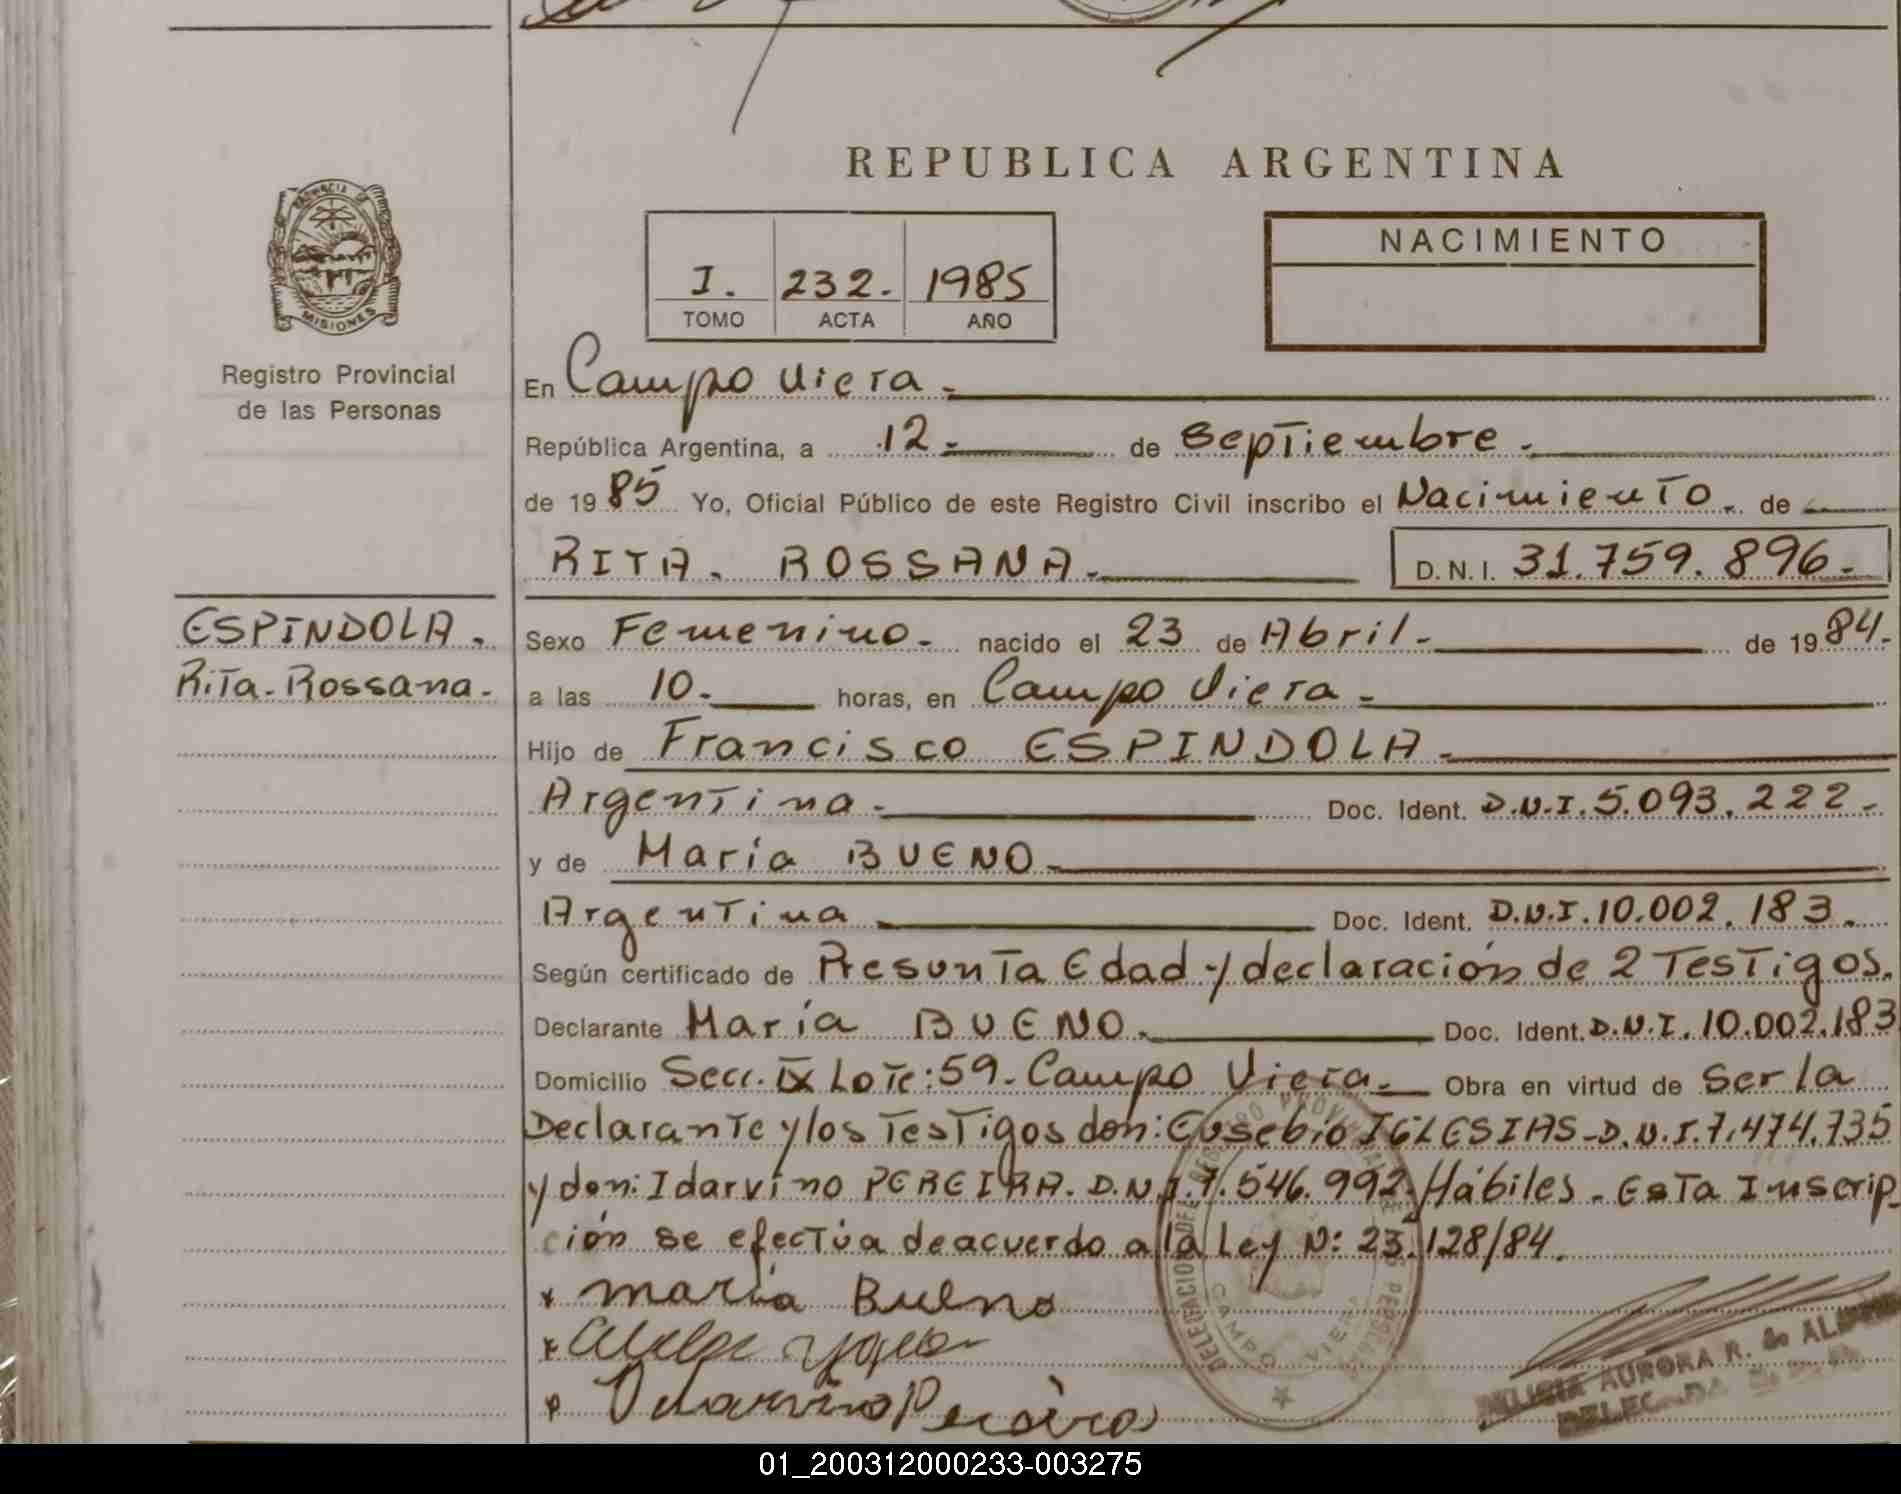 REPUBLICA ARGENTINA
PROVINCIA DE
MISIONES
Registro Provincial
de las Personas
I. 232. 1985
TOMO ACTA AÑO
NACIMIENTO
En Campo Viera.
República Argentina, a 12. de Septiembre.
de 1985 Yo, Oficial Público de este Registro Civil inscribo el Nacimiento. de
RITA. ROSSANA. D.N.I. 31.759.896.
ESPINDOLA.
Rita. Rossana.
Sexo Femenino. nacido el 23 de Abril. de 1984.
a las 10. horas, en Campo Viera.
Hijo de Francisco ESPINDOLA.
Argentina. Doc. Ident. D.N.I. 5.093.222.
y de María BUENO.
Argentina Doc. Ident. D.N.I. 10.002.183.
Según certificado de Presunta Edad y declaración de 2 Testigos.
Declarante María BUENO. Doc. Ident. D.N.I. 10.002.183
Domicilio Secc. IX Lote: 59. Campo Viera. Obra en virtud de Ser la
Declarante y los Testigos don: Eusebio IGLESIAS-D.N.I. 7.474.735
y don: Idarvino PEREIRA. D.N.I. 7.546.992. Hábiles. Esta Inscrip-
ción se efectúa de acuerdo a la Ley N: 23.128/84.
x maria Bueno
CAMPO VIERA
AURORA R. de
01_200312000233-003275